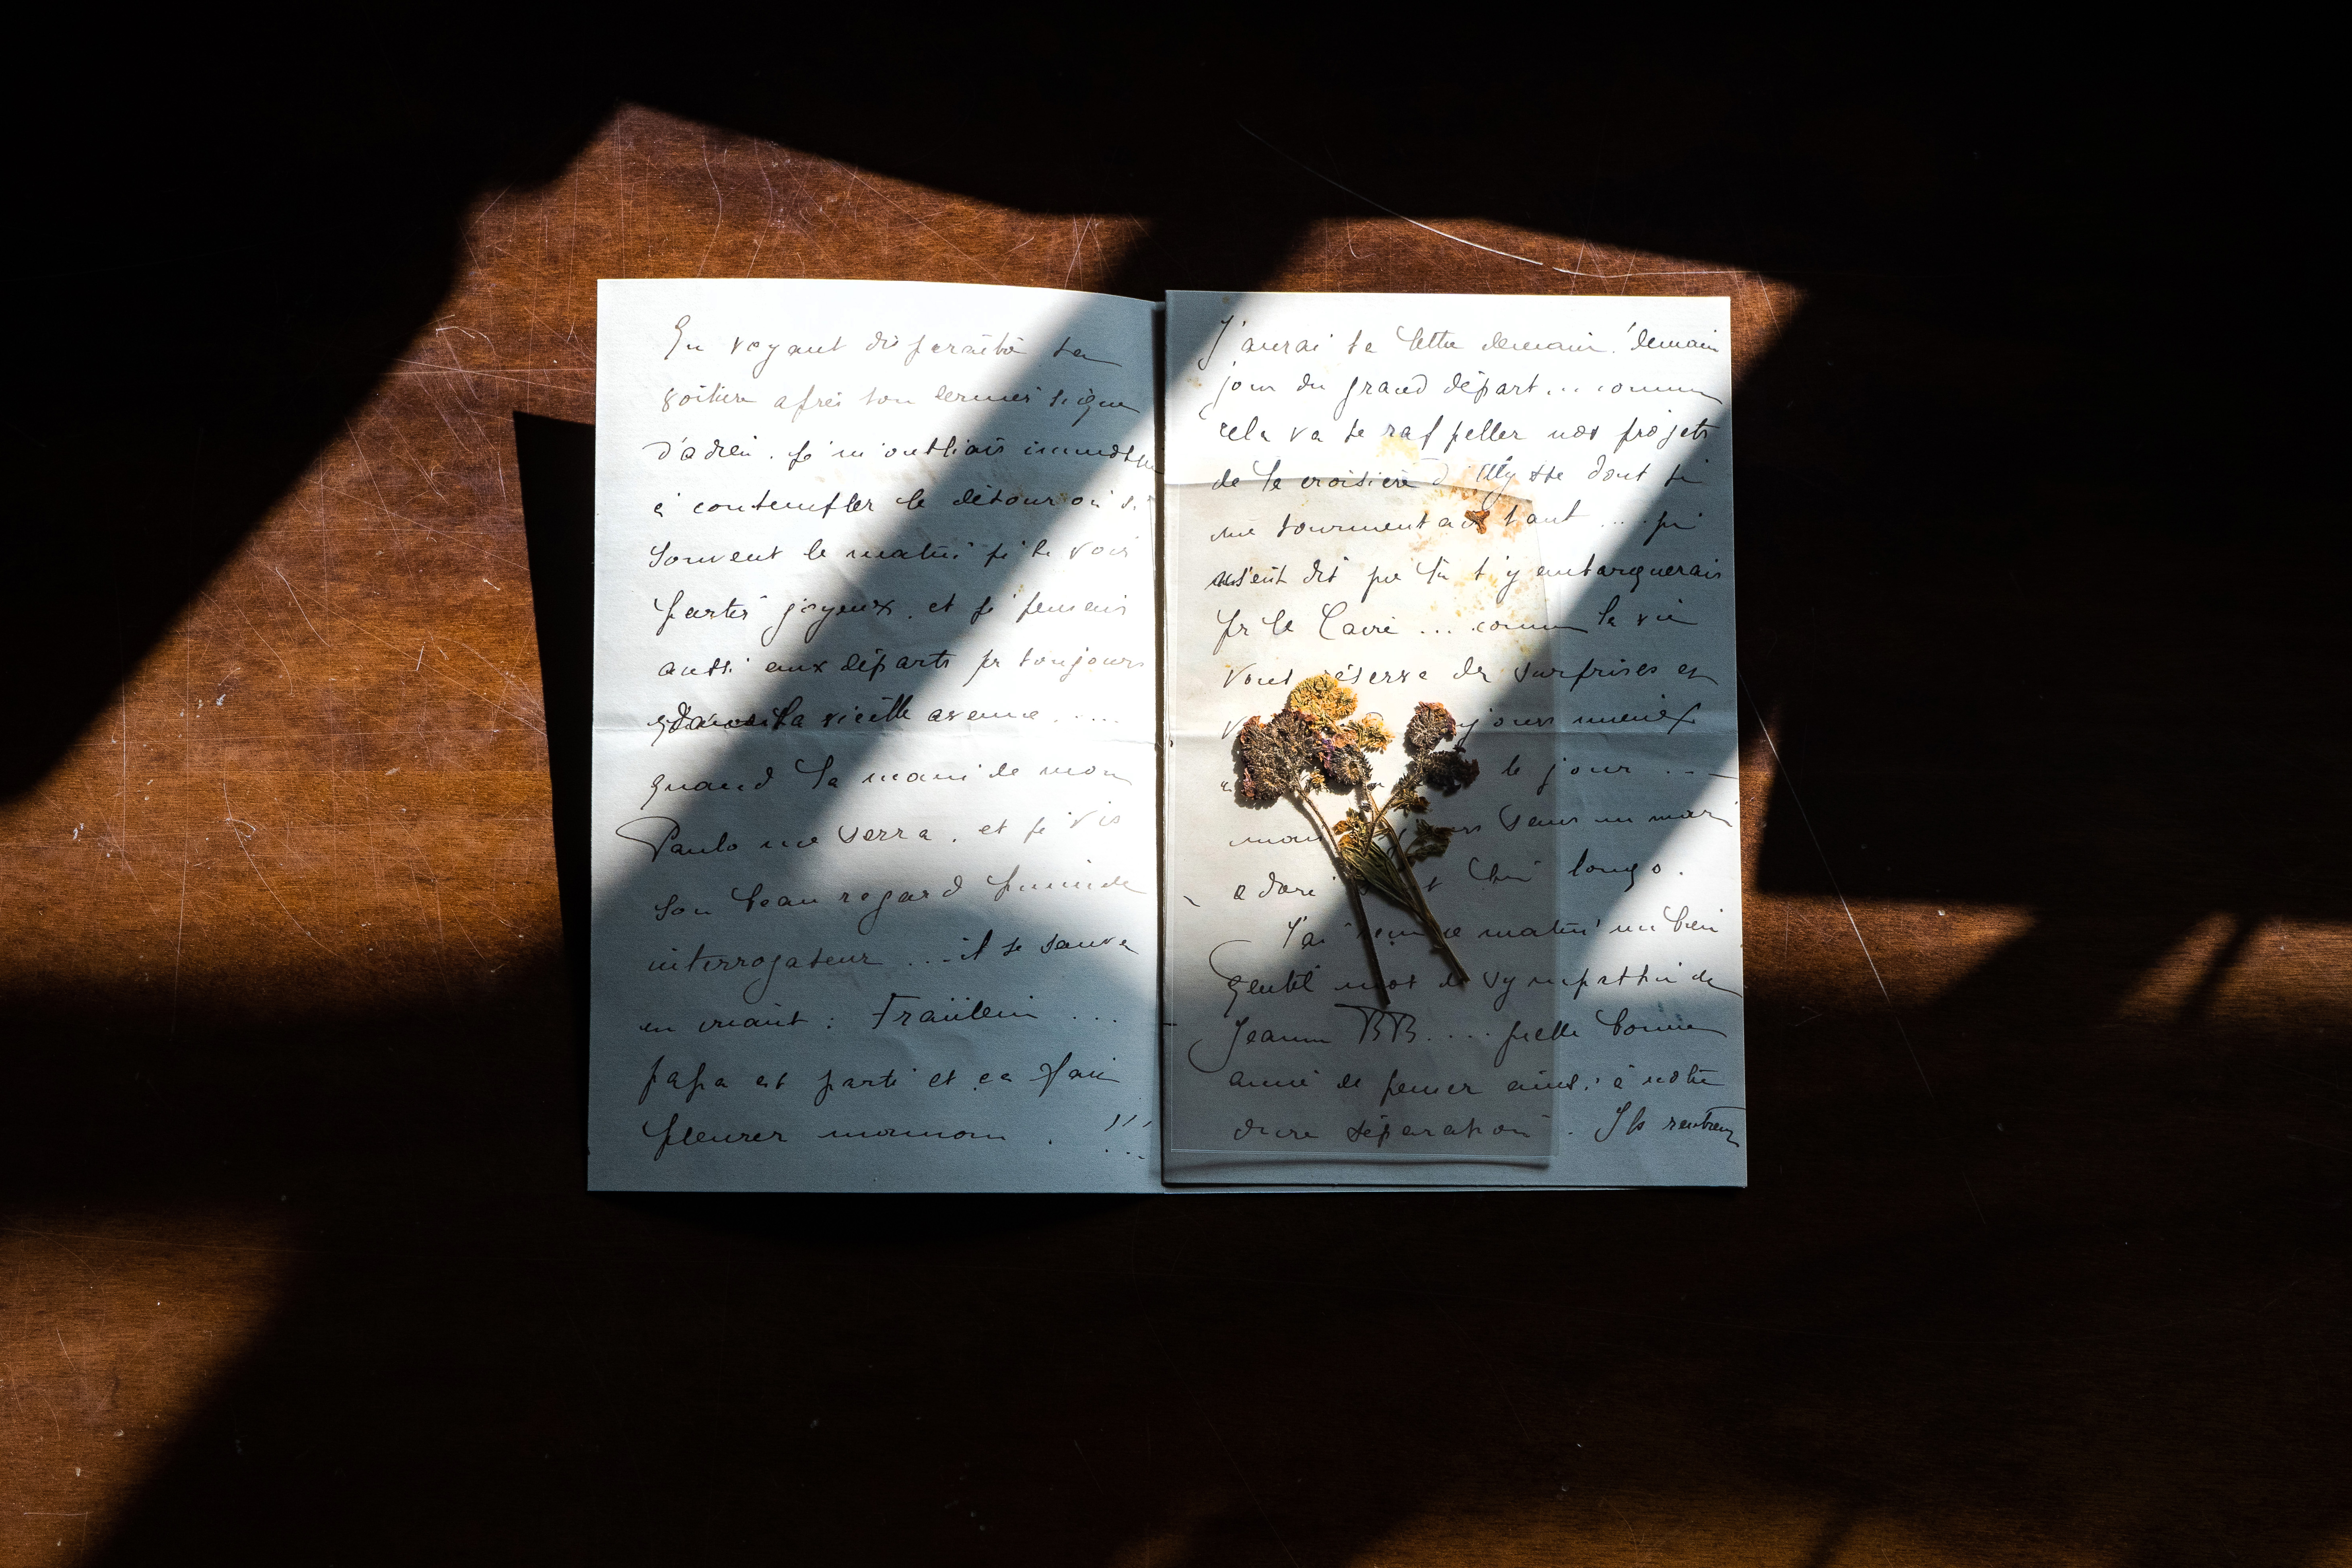 En voyant disparaître ta
voiture après ton dernier signe
d'adieu. je m'oubliais immobile
à contempler le détour où si
souvent le matin je te vois
partir joyeux. et je pensais
aussi aux départs pr toujours
la vieille avenue.....
quand la main de mon
Paulo me serra. et je vis
son beau regard humide
interrogateur ... il se sauva
en criant : Fraülein ...
papa est parti et ça fait
pleurer maman . !!!
J'aurai ta lettre demain! demain
jour du grand départ... comme
cela va te rappeller nos projets
de la croisière d' dont tu
me tourmentais tant .... qui
m'eut dit que tu t'y embarquerais
pr le Caire ... comme la vie
vous réserve des surprises et
mieux
le jour ...
mari
adoré longs.
J'ai ce matin un bien
gentil mot de sympathie de
Jeanne BB.... quelle bonne
amie de penser ainsi à notre
dure séparation . Ils rentrent